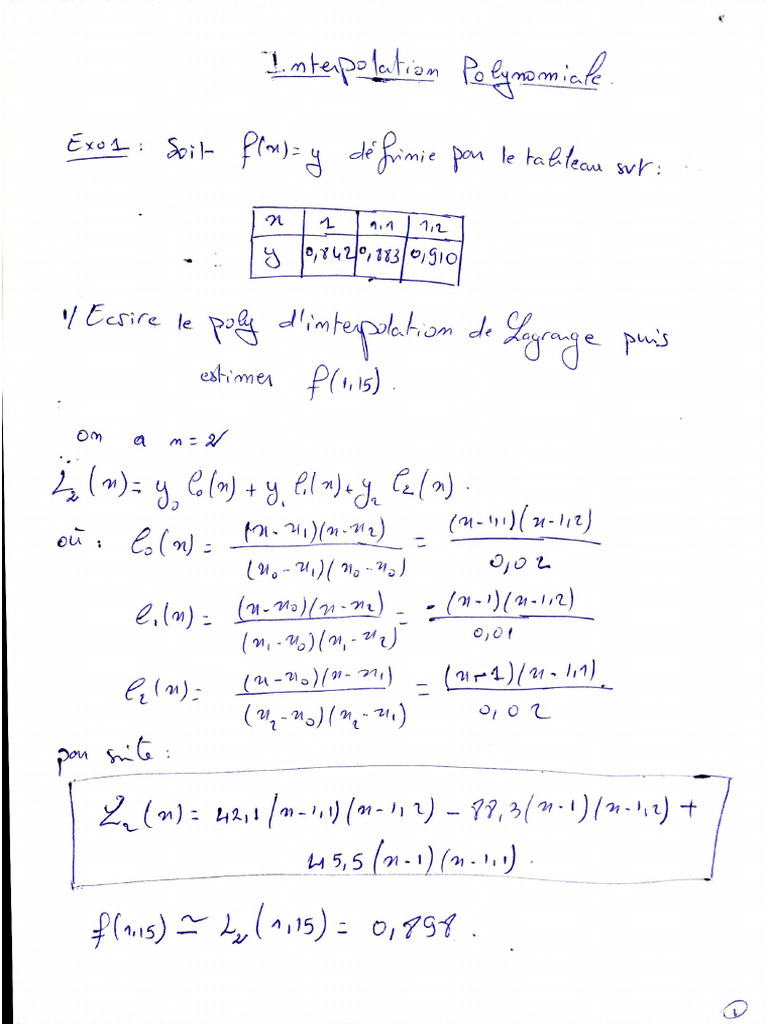 Interpolation Polynomiale.
Exo1 : Soit f(x)=y définie par le tableau svt :
x 1 1,1 1,2
y 0,842 0,883 0,910
1/ Ecrire le poly d'interpolation de Lagrange puis
estimer f(1,15).
on a n=2
L₂(x) = y₀ l₀(x) + y₁ l₁(x) + y₂ l₂(x).
où : l₀(x) = (x-x₁)(x-x₂) / (x₀-x₁)(x₀-x₀) = (x-1,1)(x-1,2) / 0,02
l₁(x) = (x-x₀)(x-x₂) / (x₁-x₀)(x₁-x₂) = -(x-1)(x-1,2) / 0,01
l₂(x) = (x-x₀)(x-x₁) / (x₂-x₀)(x₂-x₁) = (x-1)(x-1,1). / 0,02
par suite :
L₂(x) = 42,1(x-1,1)(x-1,2) - 88,3(x-1)(x-1,2) +
45,5(x-1)(x-1,1).
f(1,15) ≃ L₂(1,15) = 0,898.
1